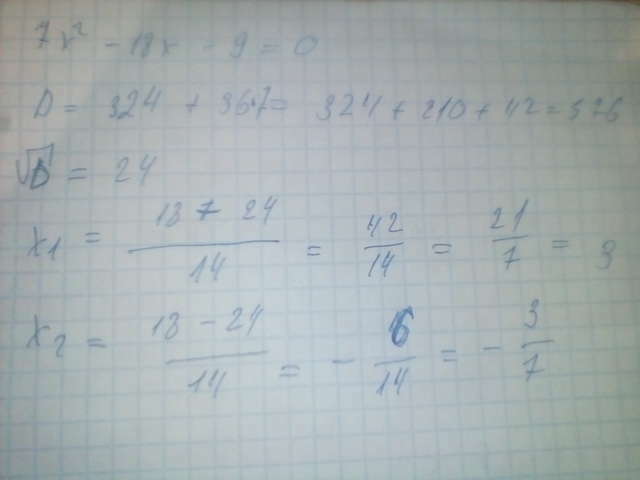 7x² - 18x - 9 = 0
D = 324 + 36·7 = 324 + 210 + 42 = 576
√D = 24
x1 = (18 + 24)/14 = 42/14 = 21/7 = 3
x2 = (18 - 24)/14 = - 6/14 = - 3/7